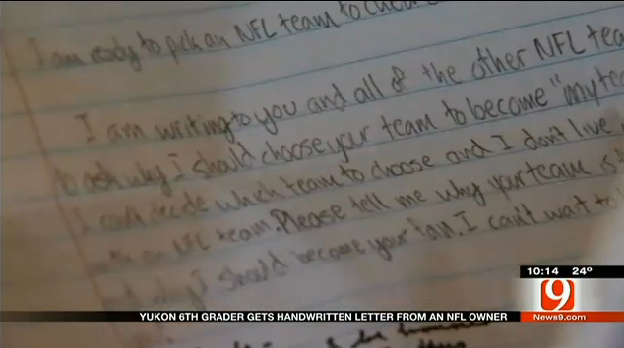 I am ready to pick an NFL team to
I am writing to you and all of the other NFL
to ask why I should choose your team to become "my
I can't decide which team to choose and I don't live
an NFL team. Please tell me why your team is
why I should become your fan. I can't wait to
10:14 24°
9
News9.com
YUKON 6TH GRADER GETS HANDWRITTEN LETTER FROM AN NFL OWNER